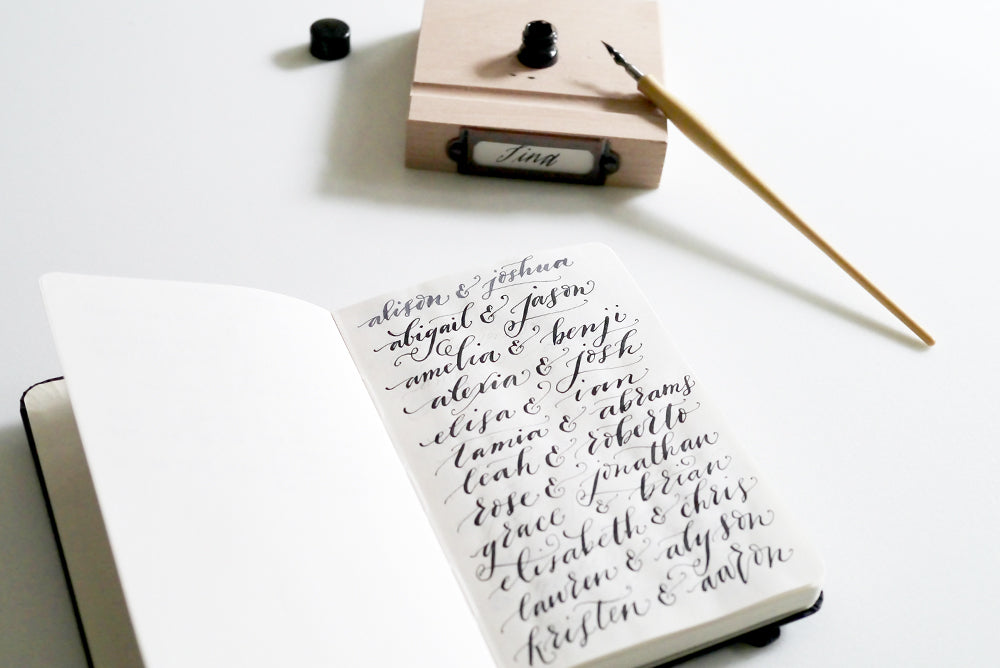 Tina
alison & joshua
abigail & jason
amelia & benji
alexia & josh
elisa & ian
tamia & abrams
leah & roberto
rose & jonathan
grace & brian
elisabeth & chris
lauren & alyson
kristen & aaron